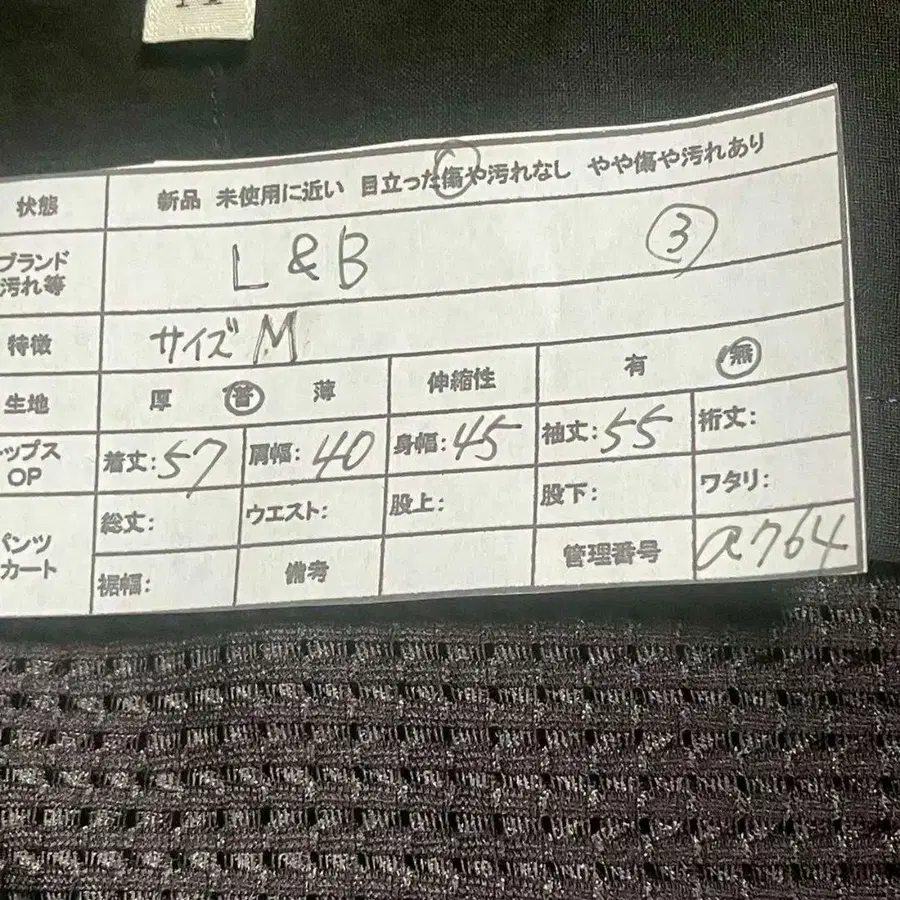 状態 新品 未使用に近い 目立った傷や汚れなし やや傷や汚れあり
ブランド L&B ③
汚れ等
特徴 サイズ M
生地 厚 普 薄 伸縮性 有 無
トップス 着丈:57 肩幅:40 身幅:45 袖丈:55 裄丈:
OP
パンツ 総丈: ウエスト: 股上: 股下: ワタリ:
カート 裾幅: 備考 管理番号 a764